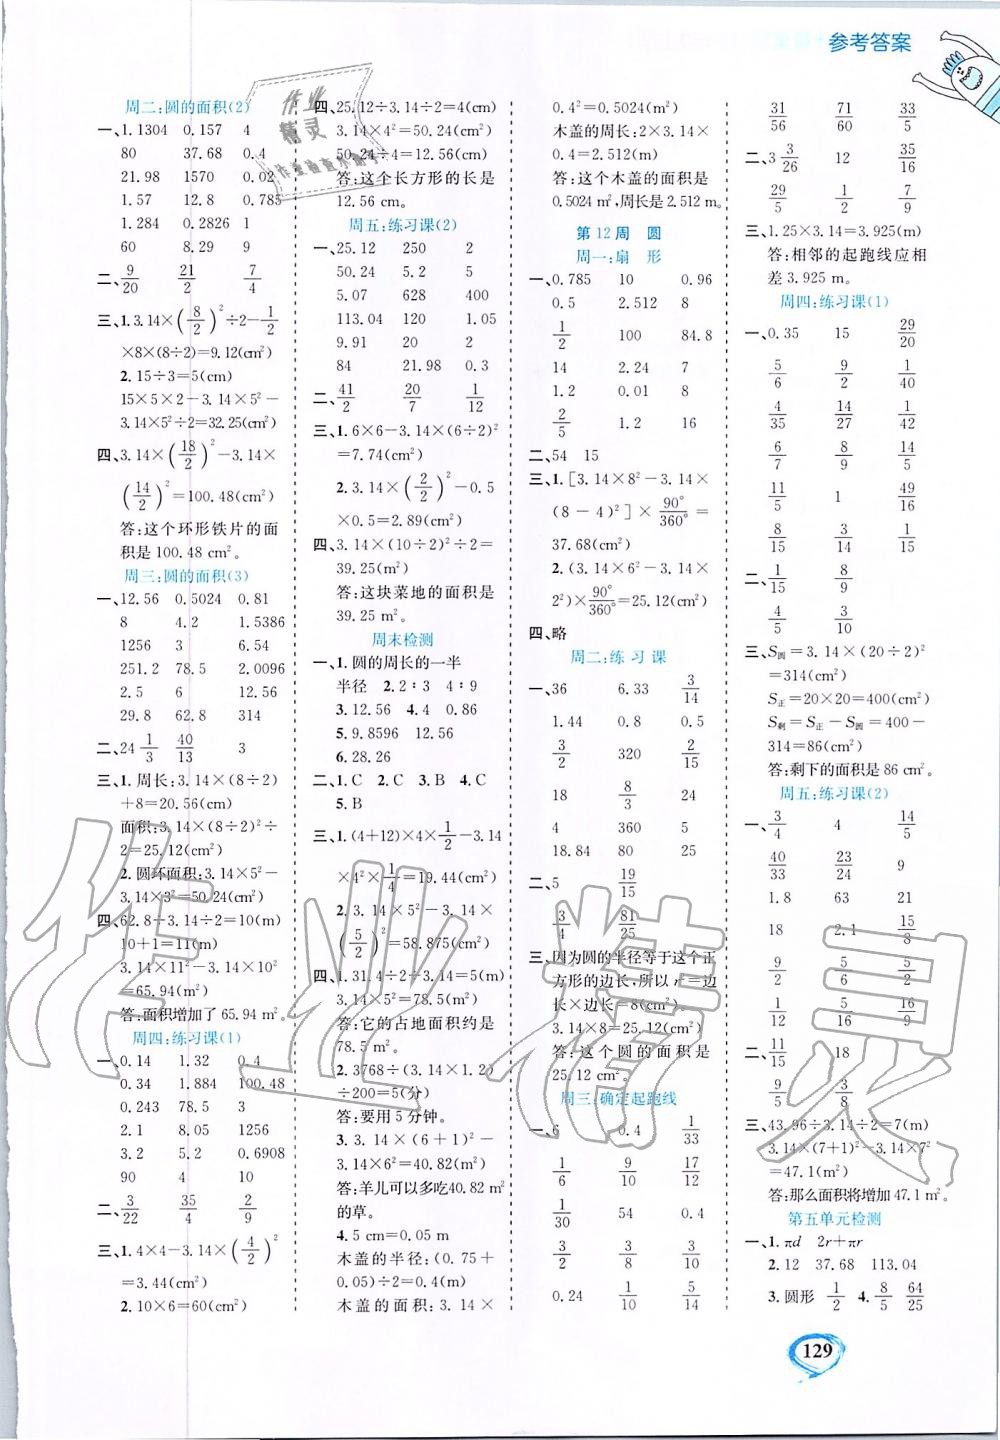 参考答案
周二:圆的面积(2)
一、1.1304 0.157 4
80 37.68 0.4
21.98 1570 0.02
1.57 12.8 0.785
1.284 0.2826 1
60 8.29 9
二、9/20 21/2 7/4
三、1.3.14×(8/2)²÷2-1/2
×8×(8÷2)=9.12(cm²)
2.15÷3=5(cm)
15×5×2-3.14×5²-
3.14×5²÷2=32.25(cm²)
四、3.14×(18/2)²-3.14×
(14/2)²=100.48(cm²)
答:这个环形铁片的面
积是100.48 cm²。
周三:圆的面积(3)
一、12.56 0.5024 0.81
8 4.2 1.5386
1256 3 6.54
251.2 78.5 2.0096
2.5 6 12.56
29.8 62.8 314
二、24 1/3 40/13 3
三、1.周长:3.14×(8÷2)
+8=20.56(cm)
面积:3.14×(8÷2)²÷
2=25.12(cm²)
2.圆环面积:3.14×5²-
3.14×3²=50.24(cm²)
四、62.8÷3.14÷2=10(m)
10+1=11(m)
3.14×11²-3.14×10²
=65.94(m²)
答:面积增加了65.94 m²。
周四:练习课(1)
一、0.14 1.32 0.4
0.34 1.884 100.48
0.243 78.5 3
2.1 8.05 1256
3.2 5.2 0.6908
90 4 10
二、3/22 35/4 2/9
三、1.4×4-3.14×(4/2)²
=3.44(cm²)
2.10×6=60(cm²)
四、25.12÷3.14÷2=4(cm)
3.14×4²=50.24(cm²)
50.24÷4=12.56(cm)
答:这个长方形的长是
12.56 cm。
周五:练习课(2)
一、25.12 250 2
50.24 5.2 5
5.07 628 400
113.04 120 1.05
9.91 20 2
84 21.98 0.3
二、41/2 20/7 1/12
三、1.6×6-3.14×(6÷2)²
=7.74(cm²)
2.3.14×(2/2)²-0.5
×0.5=2.89(cm²)
四、3.14×(10÷2)²÷2=
39.25(m²)
答:这块菜地的面积是
39.25 m²。
周末检测
一、1.圆的周长的一半
半径 2.2∶3 4∶9
3.12.56 4.4 0.86
5.9.8596 12.56
6.28.26
二、1.C 2.C 3.B 4.C
5.B
三、1.(4+12)×4×1/2-3.14
×4²×1/4=19.44(cm²)
2.3.14×5²-3.14×
(5/2)²=58.875(cm²)
四、1.31.4÷2÷3.14=5(m)
3.14×5²=78.5(m²)
答:它的占地面积约是
78.5 m²。
2.3768÷(3.14×1.2)
÷200=5(分)
答:要用5分钟。
3.3.14×(6+1)²-
3.14×6²=40.82(m²)
答:羊儿可以多吃40.82 m²
的草。
4.5 cm=0.05 m
木盖的半径:(0.75+
0.05)÷2=0.4(m)
木盖的面积:3.14×
0.4²=0.5024(m²)
木盖的周长:2×3.14×
0.4=2.512(m)
答:这个木盖的面积是
0.5024 m²,周长是2.512 m。
第12周 圆
周一:扇 形
一、0.785 10 0.96
0.5 2.512 8
1/2 100 84.8
14 2.24 7
1.2 0.01 8
2/5 1.2 16
二、54 15
三、1.[3.14×8²-3.14×
(8-4)²]×90°/360°=
37.68(cm²)
2.(3.14×6²-3.14×
2²)×90°/360°=25.12(cm²)
四、略
周二:练习课
一、36 6.33 3/14
1.44 0.8 0.5
3/2 320 2/15
18 8/3 24
4 360 5
18.84 80 25
二、5 19/15
3/4 81/25
三、因为圆的半径等于这个正
方形的边长,所以r²=边
长×边长=8(cm²)
3.14×8=25.12(cm²)
答:这个圆的面积是
25.12 cm²。
周三:确定起跑线
一、6 0.4 1/33
1/6 9/10 17/12
1/30 54 0.4
3/2 3/8 3/10
0.24 1/10 5/14
31/56 71/60 33/5
二、3 3/26 12 35/16
29/5 1/2 7/9
三、1.25×3.14=3.925(m)
答:相邻的起跑线应相
差3.925 m。
周四:练习课(1)
一、0.35 15 29/20
5/6 9/2 1/40
4/35 14/27 1/42
6/7 8/9 5/14
11/5 1 49/16
8/15 3/14 1/9
二、1/15 8/9
4/5 3/10
三、S圆=3.14×(20÷2)²
=314(cm²)
S正=20×20=400(cm²)
S剩=S正-S圆=400-
314=86(cm²)
答:剩下的面积是86 cm²。
周五:练习课(2)
一、3/4 4 14/5
40/33 23/24 9
1.8 63 21
18 2.1 15/8
9/2 5/6 5/2
1/12 5/16 16/9
二、11/15 18
9/5 3/8
三、43.96÷3.14÷2=7(m)
3.14×(7+1)²-3.14×7²
=47.1(m²)
答:那么面积将增加47.1 m²。
第五单元检测
一、1.πd 2r+πr
2.12 37.68 113.04
3.圆形 1/2 4.8/5 64/25
129
作业精灵